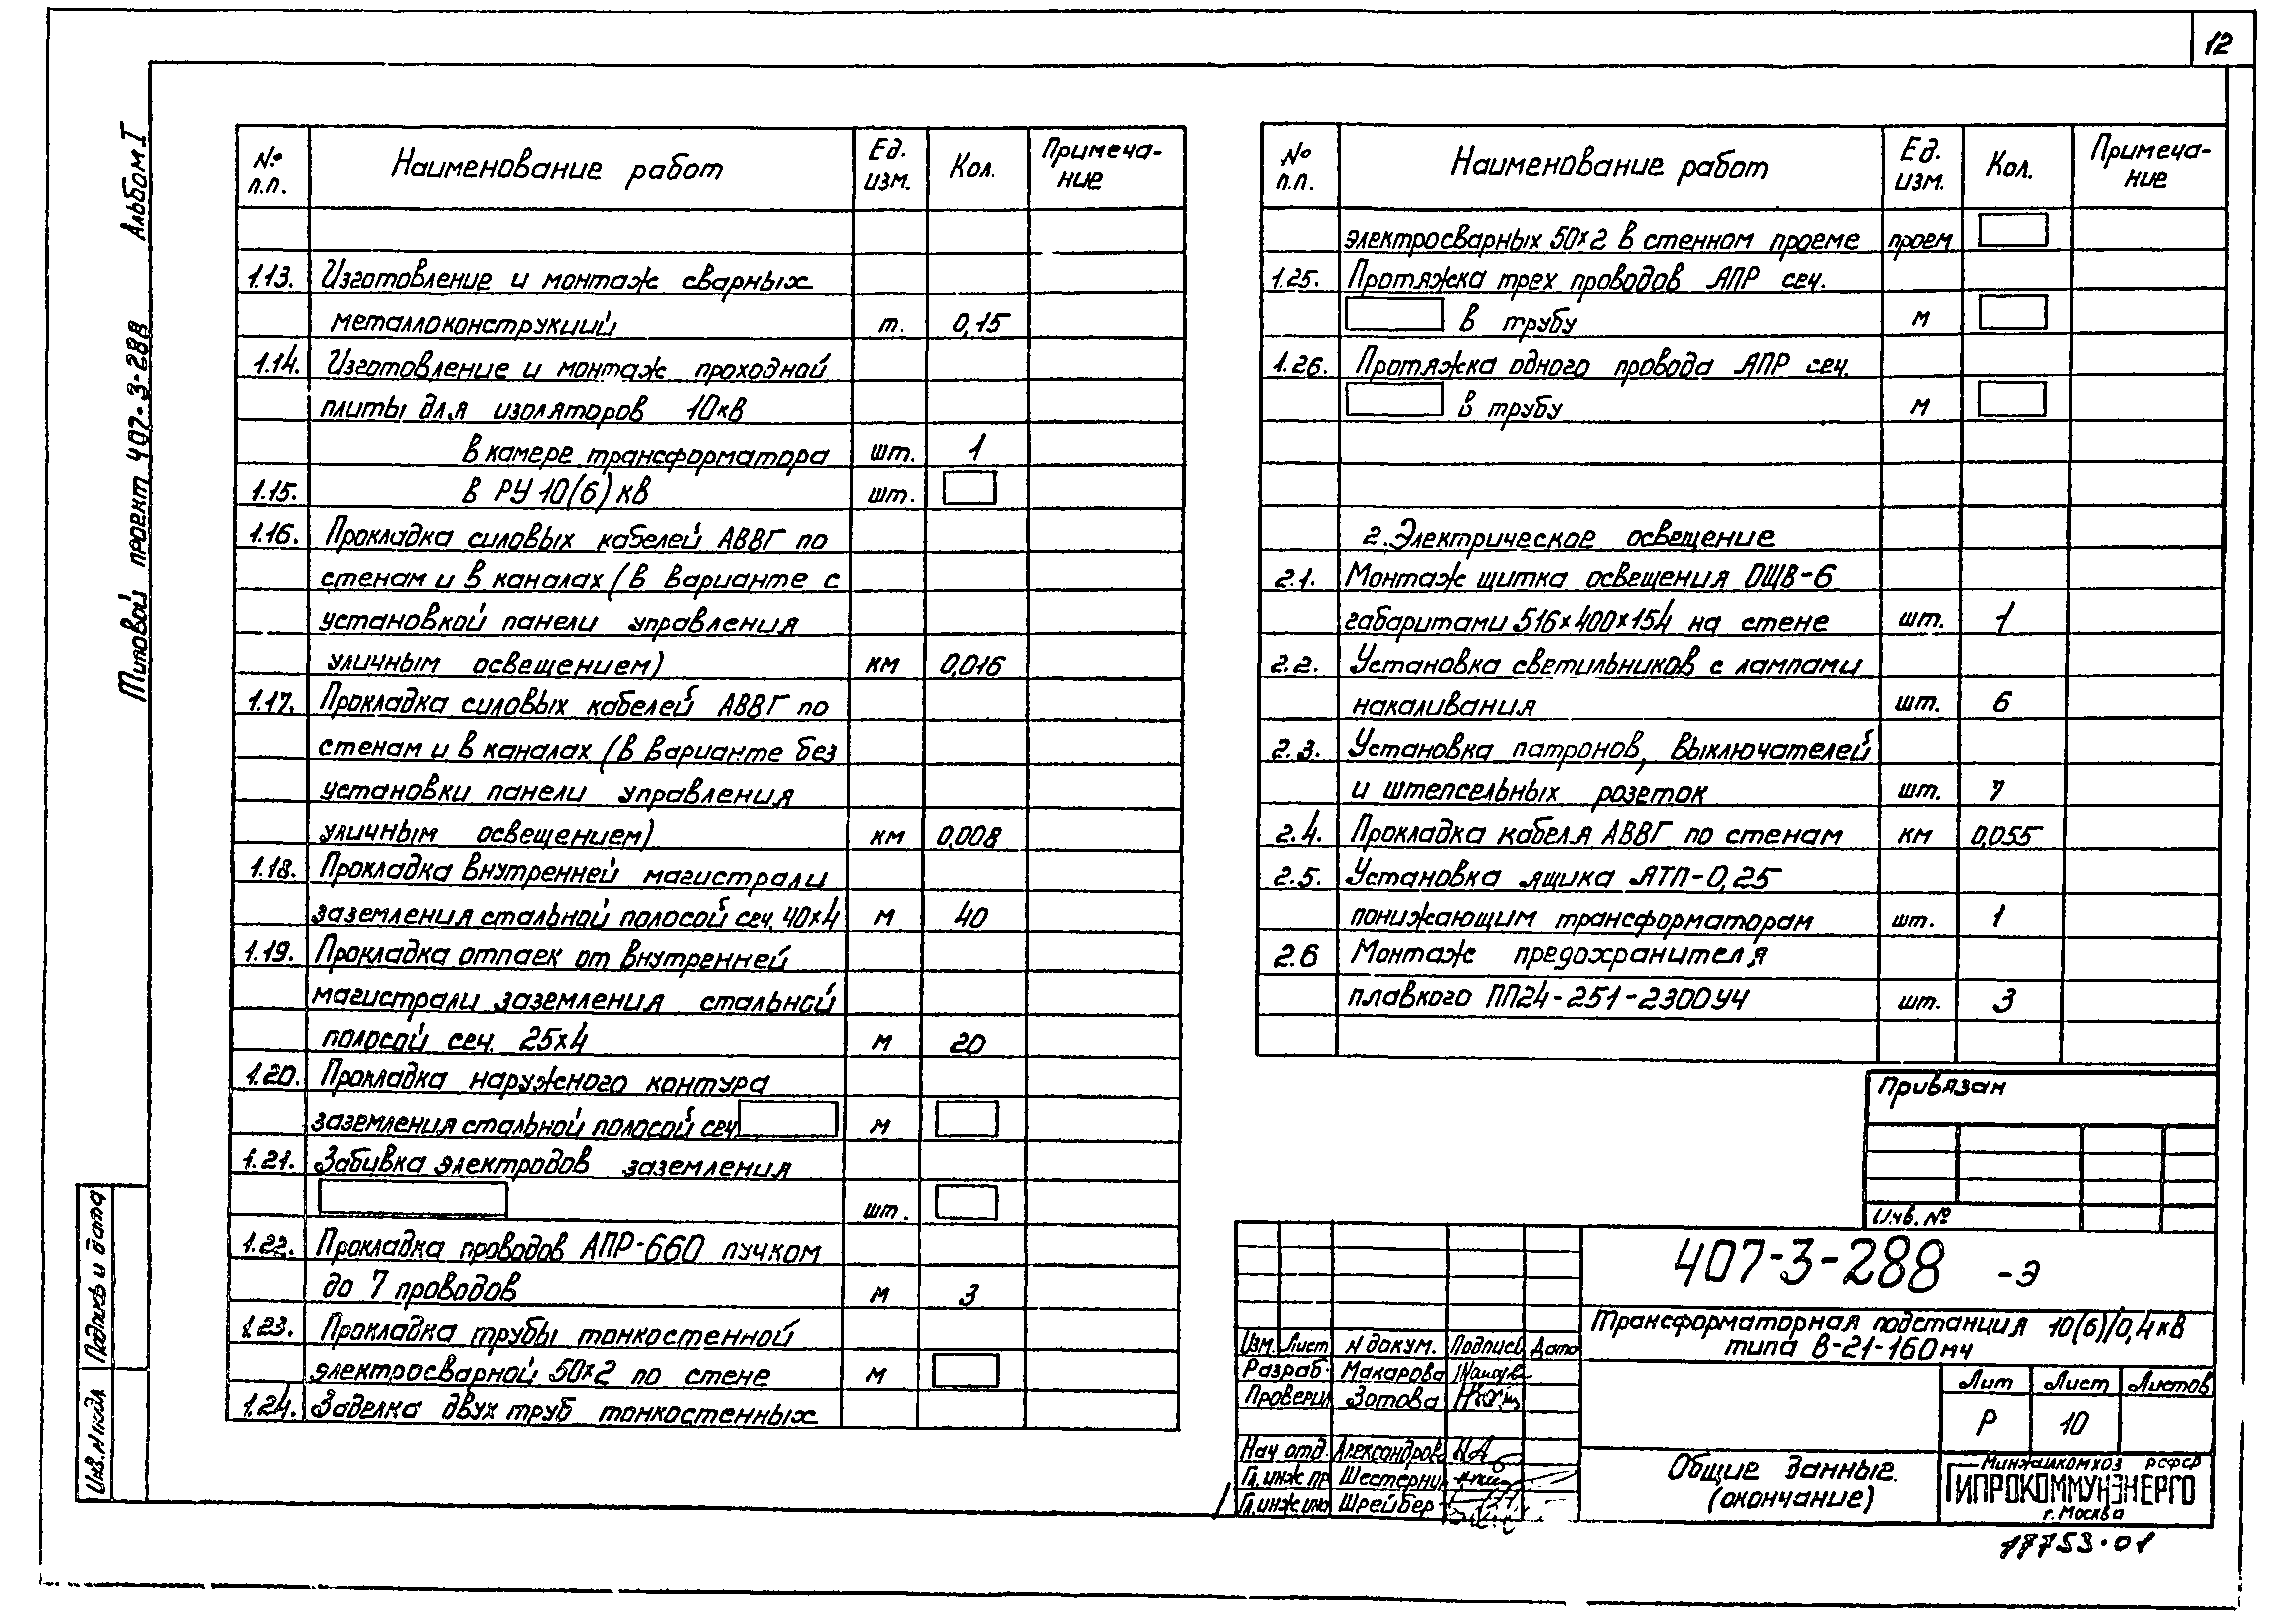 12
Типовой проект 407-3-288 Альбом I
№ п.п. Наименование работ Ед. изм. Кол. Примеча-ние
1.13. Изготовление и монтаж сварных
металлоконструкций т. 0,15
1.14. Изготовление и монтаж проходной
плиты для изоляторов 10кв
в камере трансформатора шт. 1
1.15. в РУ 10(6)кв шт.
1.16. Прокладка силовых кабелей АВВГ по
стенам и в каналах (в варианте с
установкой панели управления
уличным освещением) км 0,016
1.17. Прокладка силовых кабелей АВВГ по
стенам и в каналах (в варианте без
установки панели управления
уличным освещением) км 0,008
1.18. Прокладка внутренней магистрали
заземления стальной полосой сеч. 40×4 м 40
1.19. Прокладка отпаек от внутренней
магистрали заземления стальной
полосой сеч. 25×4 м 20
1.20. Прокладка наружного контура
заземления стальной полосой сеч м
1.21. Забивка электродов заземления
шт.
1.22. Прокладка проводов АПР-660 пучком
до 7 проводов м 3
1.23. Прокладка трубы тонкостенной
электросварной 50×2 по стене м
1.24. Заделка двух труб тонкостенных
№ п.п. Наименование работ Ед. изм. Кол. Примеча-ние
электросварных 50×2 в стенном проеме проем
1.25. Протяжка трех проводов АПР сеч.
в трубу м
1.26. Протяжка одного провода АПР сеч.
в трубу м
2. Электрическое освещение
2.1. Монтаж щитка освещения ОЩВ-6
габаритами 516×400×154 на стене шт. 1
2.2. Установка светильников с лампами
накаливания шт. 6
2.3. Установка патронов, выключателей
и штепсельных розеток шт. 7
2.4. Прокладка кабеля АВВГ по стенам км 0,055
2.5. Установка ящика ЯТП-0,25
понижающим трансформаторам шт. 1
2.6 Монтаж предохранителя
плавкого ПП24-251-2300У4 шт. 3
Привязан
Инв. №
407-3-288 -Э
Трансформаторная подстанция 10(6)/0,4кв
типа В-21-160м4
Изм. Лист N докум. Подпись Дата
Разраб. Макарова
Проверил Зотова
Нач отд. Александров
Гл. инж пр Шестерни
Гл. инж ин Шрейбер
Лит Лист Листов
Р 10
Общие данные.
(окончание)
Минжилкомхоз РСФСР
ГИПРОКОММУНЭНЕРГО
г. Москва
17753-01
Подпись и дата
Инв. N подл